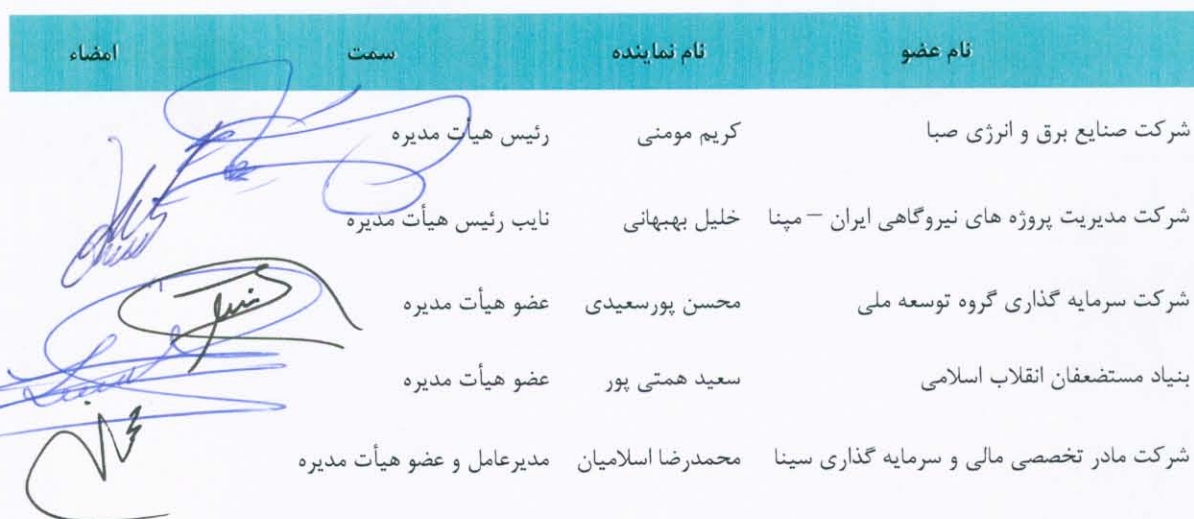 نام عضو نام نماینده سمت امضاء
شرکت صنایع برق و انرژی صبا کریم مومنی رئیس هیأت مدیره
شرکت مدیریت پروژه های نیروگاهی ایران – مپنا خلیل بهبهانی نایب رئیس هیأت مدیره
شرکت سرمایه گذاری گروه توسعه ملی محسن پورسعیدی عضو هیأت مدیره
بنیاد مستضعفان انقلاب اسلامی سعید همتی پور عضو هیأت مدیره
شرکت مادر تخصصی مالی و سرمایه گذاری سینا محمدرضا اسلامیان مدیرعامل و عضو هیأت مدیره